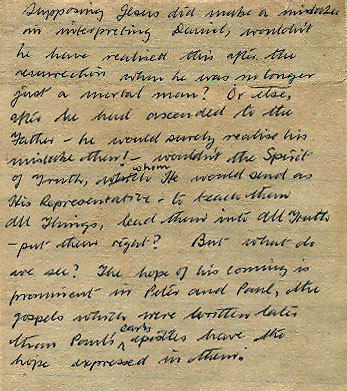 Supposing Jesus did make a mistake
in interpreting Daniel, wouldn't
he have realised this after the
resurrection when he was no longer
just a mortal man? Or else,
after he had ascended to the
Father - he would surely realise his
mistake then! - wouldn't the Spirit
of Truth, which whom He would send as
His Representative - to teach them
all Things, lead them into All Truth
- put them right? But what do
we see? The hope of his coming is
prominent in Peter and Paul, the
gospels which were written later
than Paul's early epistles have the
hope expressed in them.